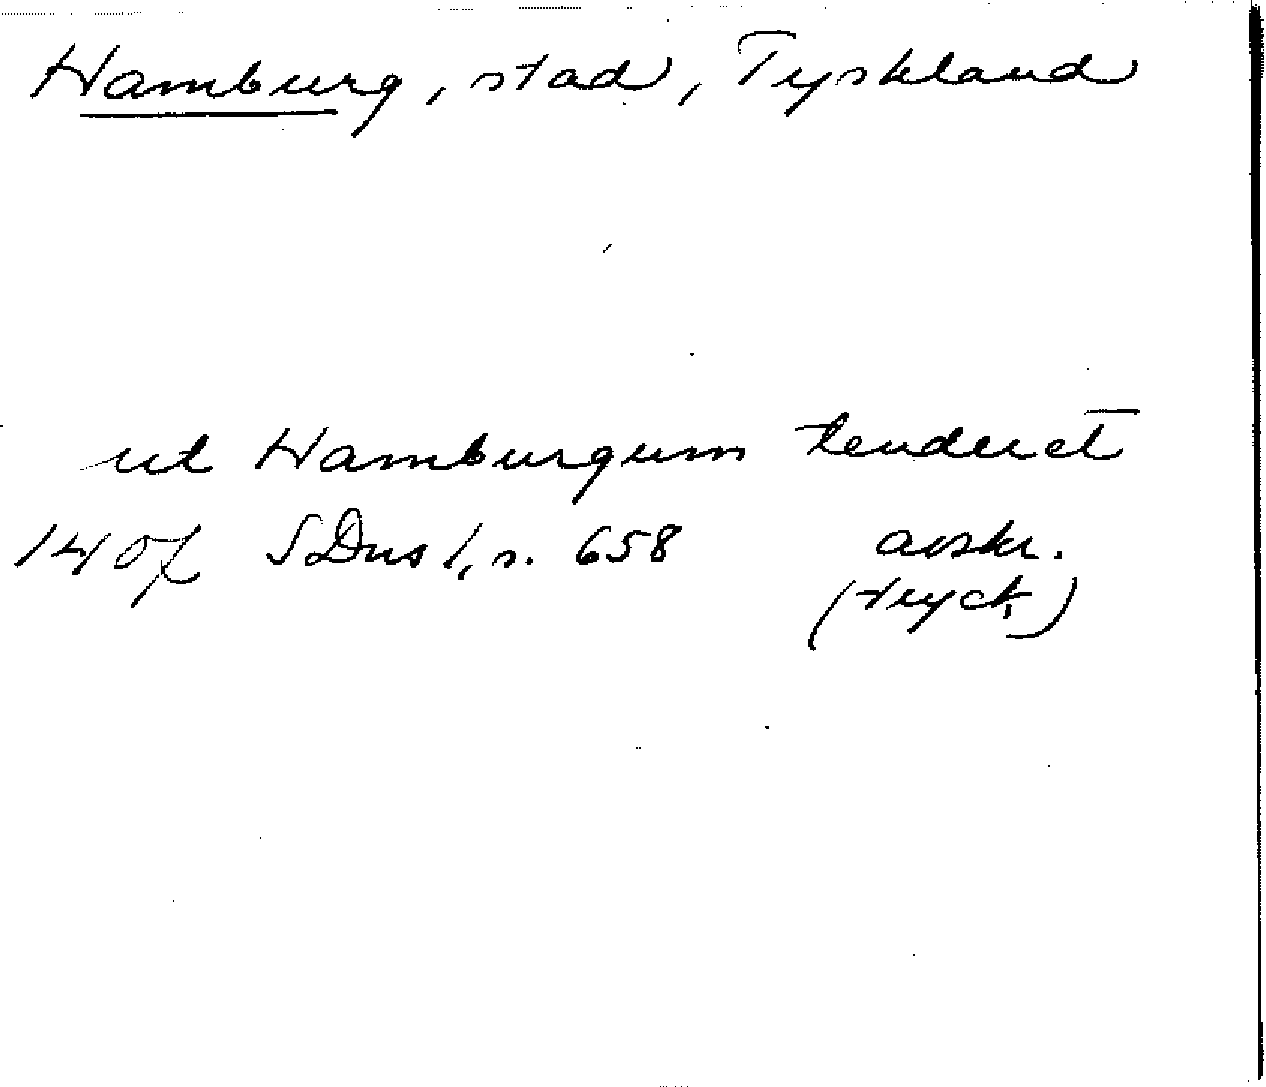 Hamburg, stad, Tyskland
ut Hamburgum tenderet
1407 SDns 1, s. 658 avskr.
(tryck)